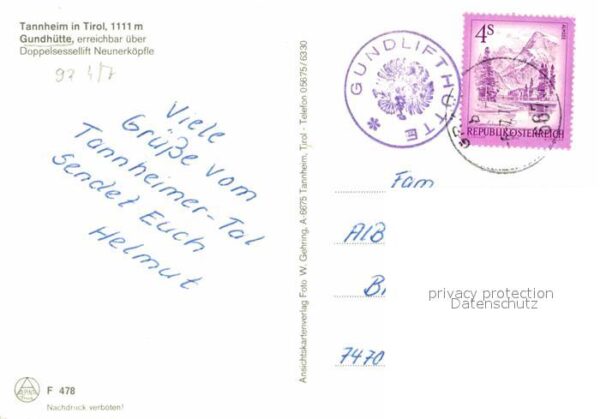 Tannheim in Tirol, 1111 m
Gundhütte, erreichbar über
Doppelsessellift Neunerköpfle
Viele
Grüße vom
Tannheimer-Tal
Sendet Euch
Helmut
F 478
Nachdruck verboten!
Ansichtskartenverlag Foto W. Gehring, A-6675 Tannheim, Tirol - Telefon 05675/6330
GUNDLIFTHÜTTE
4S
ALMSEE
REPUBLIK ÖSTERREICH
Fam
AlB
B.
7470
privacy protection
Datenschutz